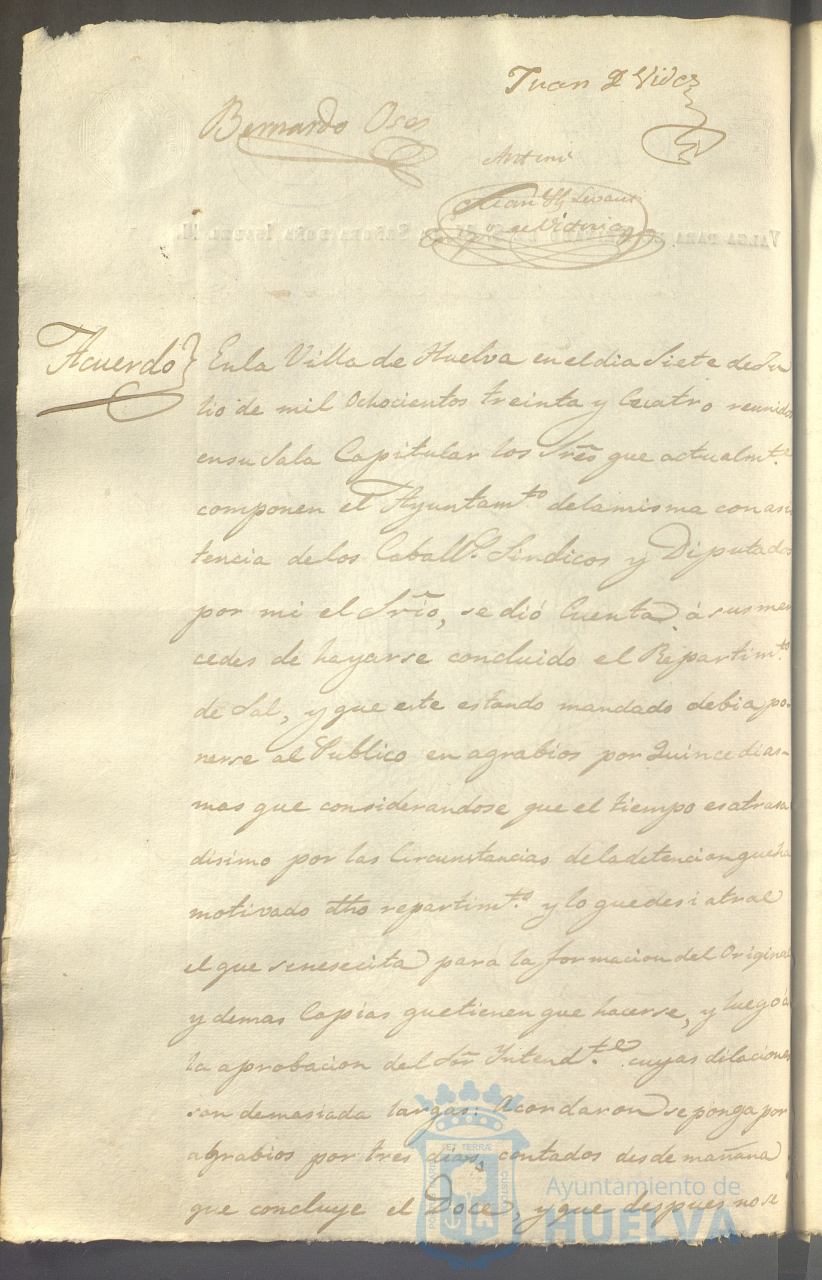 Juan D Vides
Bernardo Oses
Antoni
Juan
de Victoria
VALGA PARA EL REINADO DE LA SEÑORA DOÑA ISABEL II.
Acuerdo En la Villa de Huelva en el dia Siete de Ju
lio de mil Ochocientos treinta y Cuatro reunidos
en su Sala Capitular los Sres que actualmte
componen el Ayuntamto de la misma con asis
tencia de los Caballs Sindicos y Diputados
por mi el Srio, se dió Cuenta á sus mer
cedes de hayarse concluido el Repartimto
de Sal, y que este estando mandado debia po-
nerse al Publico en agrabios por Quince dias-
mas que considerandose que el tiempo es atrasa
disimo por las Circunstancias de la detencion que ha
motivado dho repartimto y lo que
el que se nesecita para la formacion del Original
y demas Copias que tienen que hacerse, y luego á
la aprobacion del Sor Intendte cuyas dilaciones
son demasiada largas: Acordaron se ponga por
agrabios por tres dias, contados desde mañana
que concluye el Doce, y que despues no se
Ayuntamiento de
HUELVA